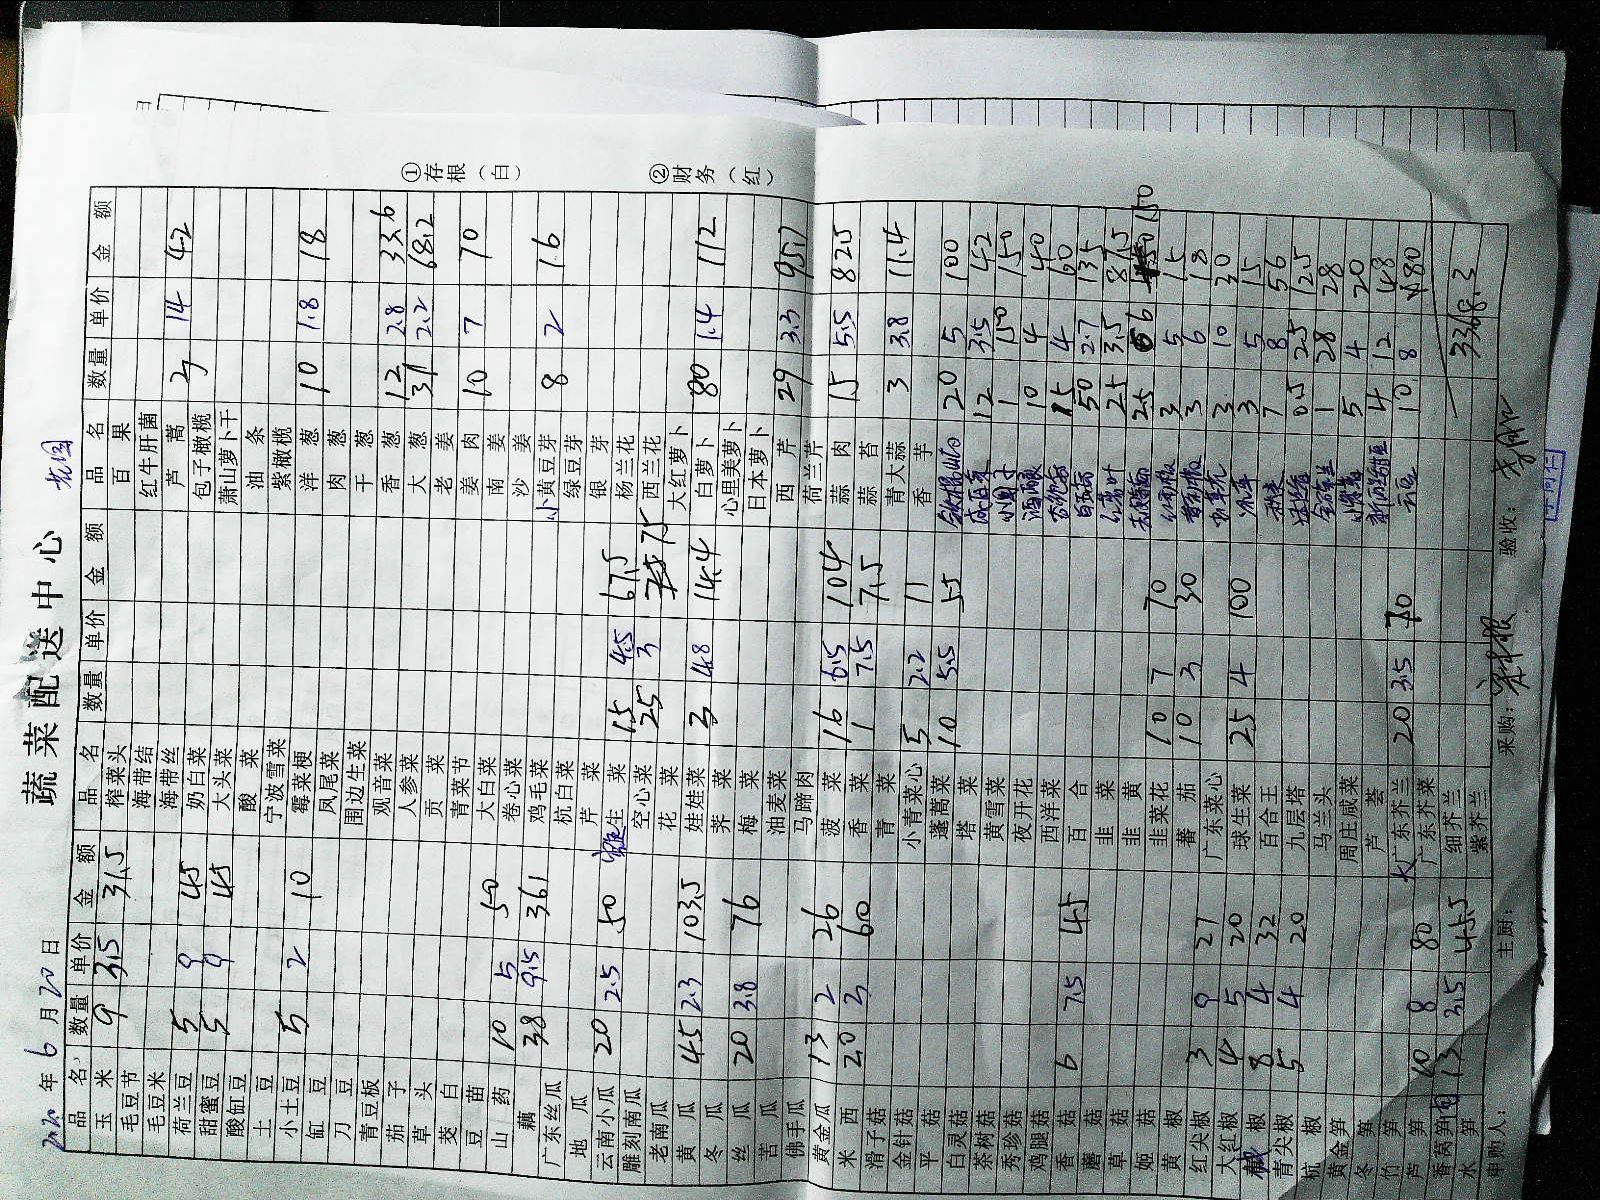 蔬菜配送中心
年 6 月 20 日
品名 数量 单价 金额 品名 数量 单价 金额 品名 数量 单价 金额
玉米 9 3.5 31.5 榨菜头 百果
毛豆节 海带结 红牛肝菌
毛豆米 海带丝 芦蒿 3 14 42
荷兰豆 5 9 45 奶白菜 包子橄榄
甜蜜豆 5 9 45 大头菜 萧山萝卜干
酸缸豆 酸菜 油条
土豆 宁波雪菜 紫橄榄
小土豆 5 2 10 霉菜梗 洋葱 10 1.8 18
缸豆 凤尾菜 肉葱
刀豆 围边生菜 干葱
青豆板 观音菜 香葱 12 2.8 33.6
茄子 人参菜 大葱 31 2.2 68.2
草头 贡菜 老姜
茭白 青菜节 姜肉 10 7 70
豆苗 大白菜 南姜
山药 10 5 50 卷心菜 沙姜
藕 38 9.5 361 鸡毛菜 小黄豆芽 8 2 16
广东丝瓜 杭白菜 绿豆芽
地瓜 芹菜 银芽
云南小瓜 20 2.5 50 生菜 15 4.5 67.5 杨兰花
雕刻南瓜 空心菜 25 3 75 西兰花
老南瓜 花菜 大红萝卜
黄瓜 45 2.3 103.5 娃娃菜 3 4.8 14.4 白萝卜 80 1.4 112
冬瓜 荠菜 心里美萝卜
丝瓜 20 3.8 76 梅菜 日本萝卜
苦瓜 油麦菜 西芹 29 3.3 95.7
佛手瓜 马蹄肉 荷兰芹
黄金瓜 13 2 26 菠菜 16 6.5 104 蒜肉 15 5.5 82.5
米西 20 3 60 香菜 1 7.5 7.5 蒜苔
滑子菇 青菜 青大蒜 3 3.8 11.4
金针菇 小青菜心 5 2.2 11 香芋
平菇 蓬蒿菜 10 5.5 55 20 5 100
白灵菇 塔菜 12 3.5 42
茶树菇 黄雪菜 1 150 150
秀珍菇 夜开花 10 4 40
鸡腿菇 西洋菜 15 4 60
香菇 6 7.5 45 百合 50 2.7 135
蘑菇 韭菜 25 3.5 87.5
草菇 韭黄 25 6 150
姬菇 韭菜花 10 7 70 3 5 15
黄椒 番茄 10 3 30 3 6 18
红尖椒 3 9 27 广东菜心 3 10 30
大红椒 4 5 20 球生菜 25 4 100 3 5 15
椒 8 4 32 百合王 7 8 56
青尖椒 5 4 20 九层塔 0.5 25 12.5
杭椒 马兰头 1 28 28
黄金笋 周庄咸菜 5 4 20
冬笋 芦荟 4 12 48
竹笋 广东芥兰 20 3.5 70 云豆 10 8 80
芦笋 10 8 80 广东芥菜
香莴笋 13 3.5 45.5 细芥兰 3368.3
水笋 紫芥兰
申购人： 主厨： 采购： 验收：
①存根（白）
②财务（红）